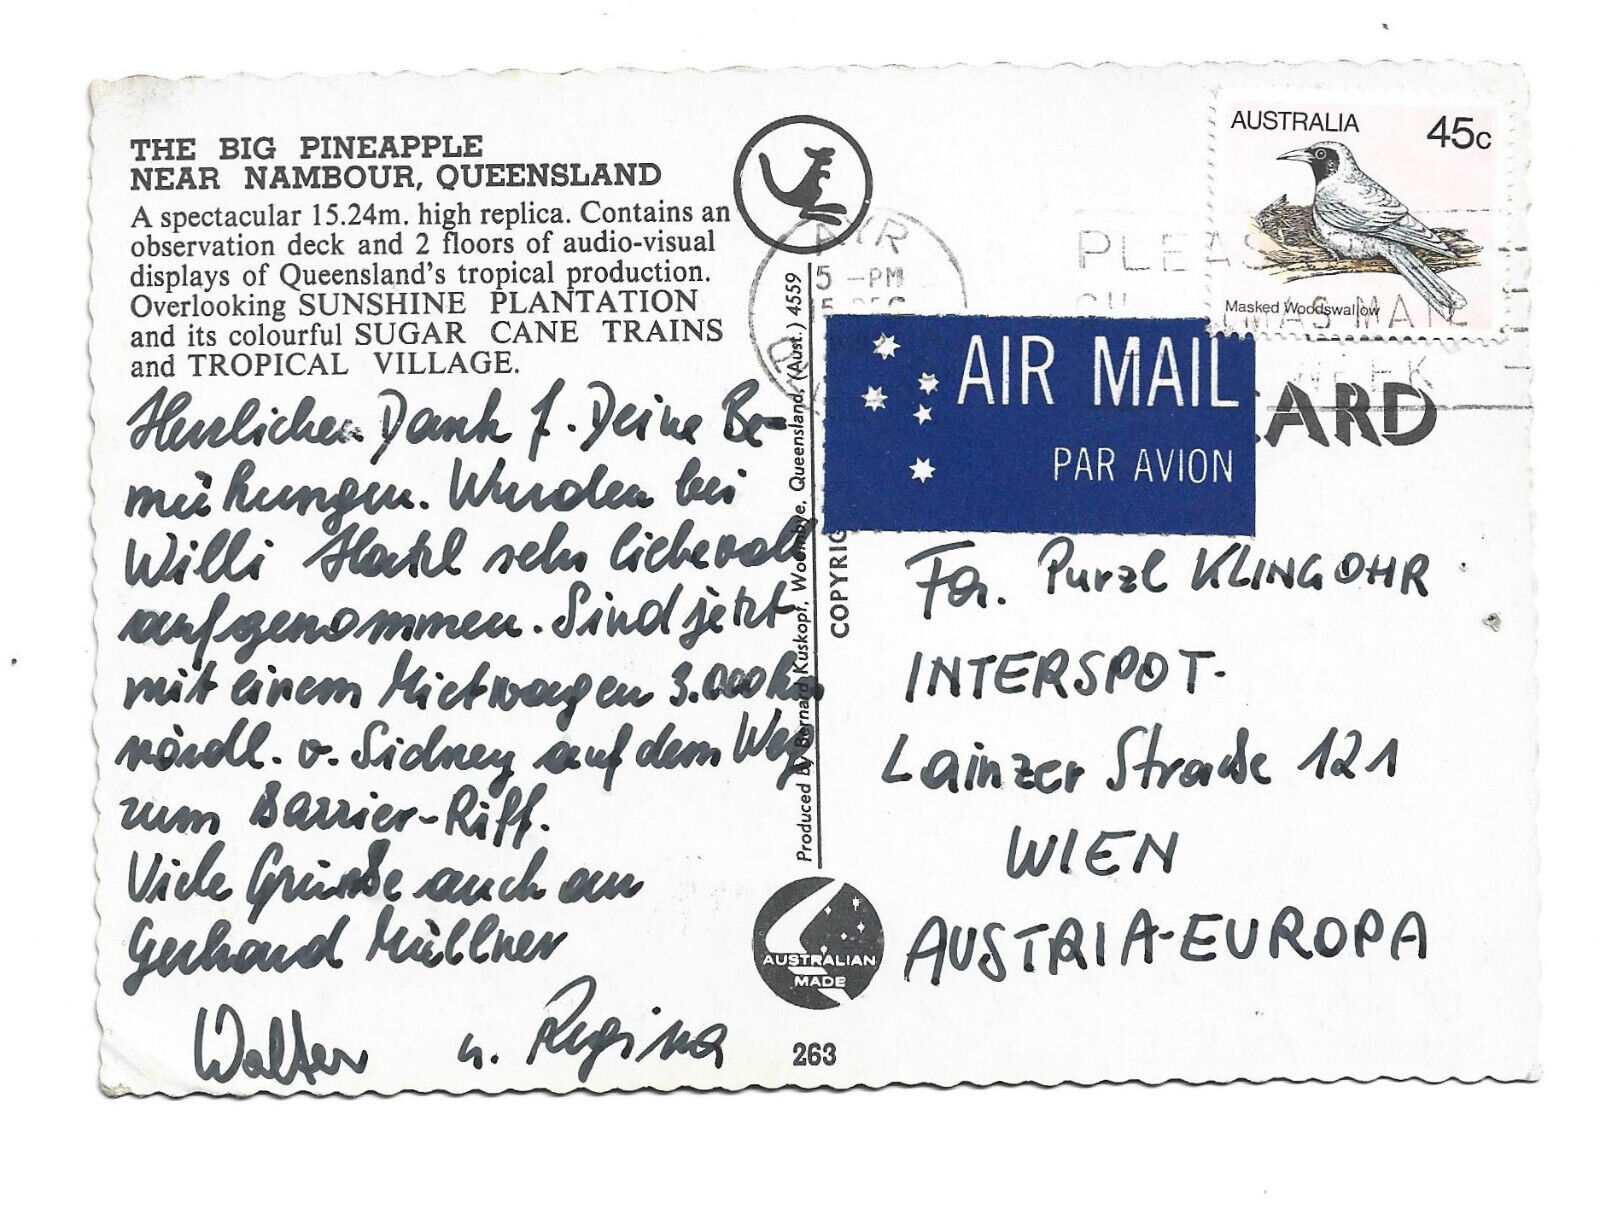 THE BIG PINEAPPLE
NEAR NAMBOUR, QUEENSLAND
A spectacular 15.24m. high replica. Contains an
observation deck and 2 floors of audio-visual
displays of Queensland's tropical production.
Overlooking SUNSHINE PLANTATION
and its colourful SUGAR CANE TRAINS
and TROPICAL VILLAGE.
Herzlichen Dank f. Deine Be-
mühungen. Wurden bei
Willi sehr liebevoll
aufgenommen. Sind jetzt
mit einem Mietwagen 3.000 km
nördl. v. Sidney auf dem Weg
zum Barrier-Riff.
Viele Grüße auch an
Gerhard Müllner
Walter u. Regina
Produced by Bernard Kuskopf, Woombye, Queensland, (Aust.) 4559
COPYRIG
AUSTRALIAN
MADE
263
AYR
5 -PM
AUSTRALIA 45c
Masked Woodswallow
PLEAS
MAS MAIL
AIR MAIL
PAR AVION
CARD
Fa. Purzl KLINGOHR
INTERSPOT-
Lainzer Straße 121
WIEN
AUSTRIA-EUROPA